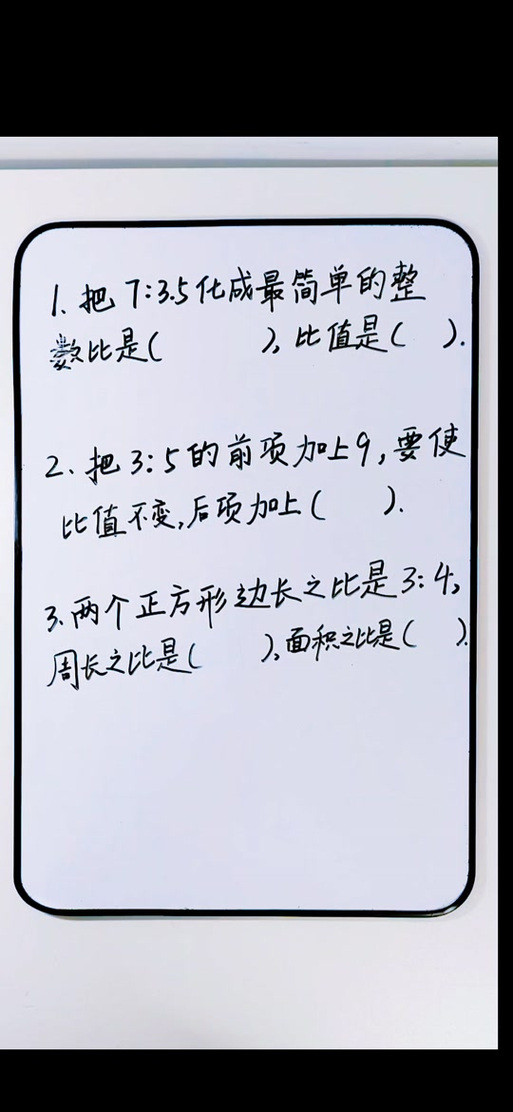 1. 把 7:3.5 化成最简单的整
数比是(        ), 比值是(    ).
2. 把 3:5 的前项加上9,要使
比值不变,后项加上(     ).
3. 两个正方形边长之比是 3:4,
周长之比是(      ), 面积之比是(    ).